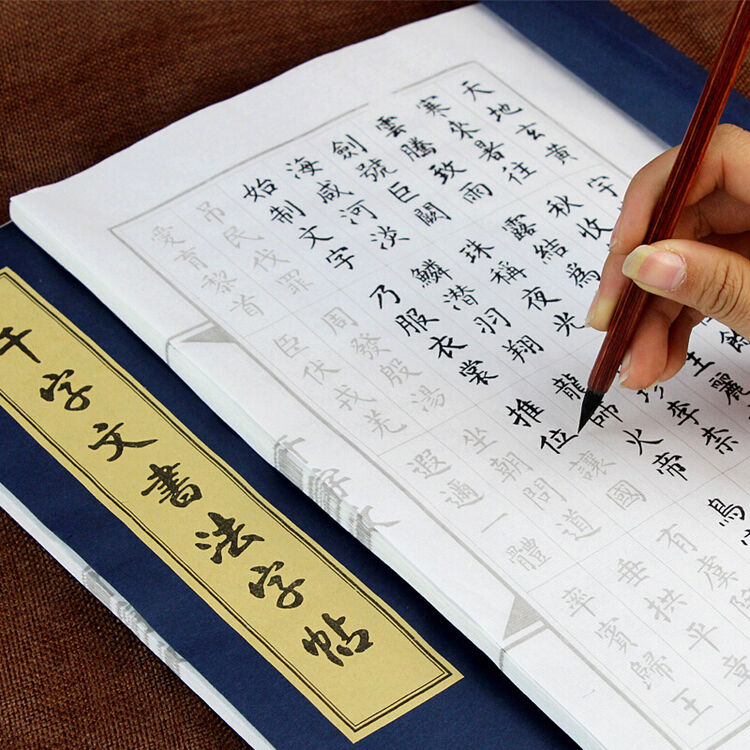 天地玄黃 宇
寒來暑往 秋收
雲騰致雨 露結為
劍號巨闕 珠稱夜光 珍李柰
海咸河淡 鱗潜羽翔 龍師火帝 鳥
始制文字 乃服衣裳 推位讓國 有虞
吊民伐罪 周發殷湯 坐朝問道 垂拱平章
愛育黎首 臣伏戎羌 遐邇一體 率賓歸王
千字文
千字文書法字帖